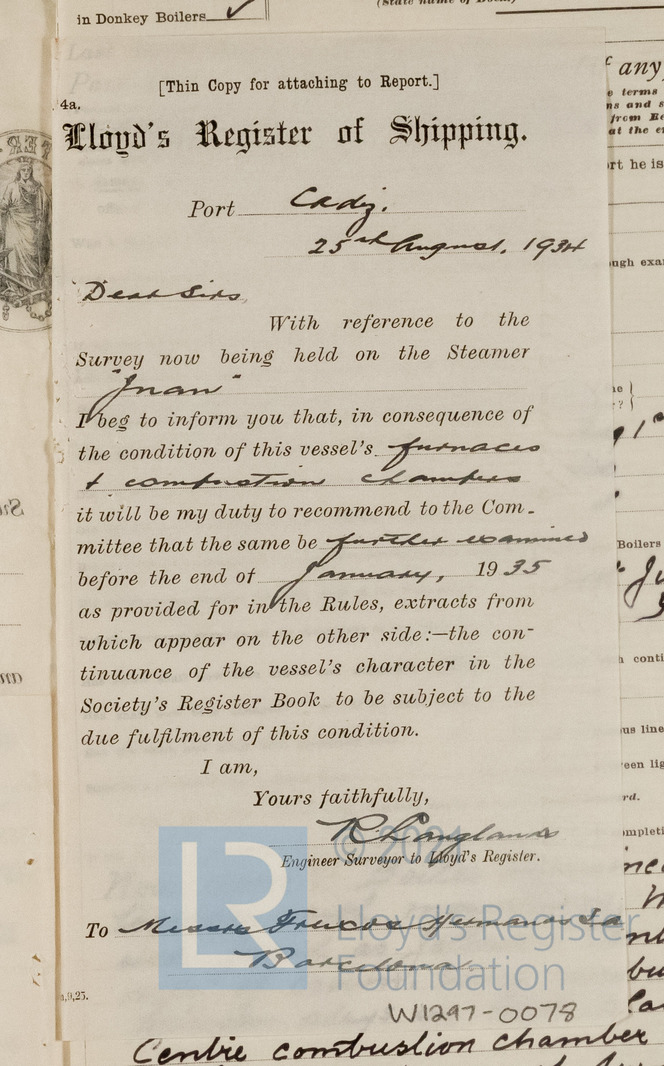 in Donkey Boilers
[Thin Copy for attaching to Report.]
4a.
Lloyd's Register of Shipping.
Port Cadiz.
25th August, 1934
Dear Sirs,
With reference to the
Survey now being held on the Steamer
"Juan"
I beg to inform you that, in consequence of
the condition of this vessel's furnaces
& combustion chambers
it will be my duty to recommend to the Com-
mittee that the same be further examined
before the end of January, 1935
as provided for in the Rules, extracts from
which appear on the other side:—the con-
tinuance of the vessel's character in the
Society's Register Book to be subject to the
due fulfilment of this condition.
I am,
Yours faithfully,
R. Langlands
Engineer Surveyor to Lloyd's Register.
To Messrs Hermanos
Barcelona
,9,25.
© 2021
LR
Lloyd's Register
Foundation
W1297-0078
Centre combustion chamber
f any
e terms
ns and s
from Re
at the e
rt he is
ugh exa
Boilers
h conti
us line
een lig
rd.
mpleti